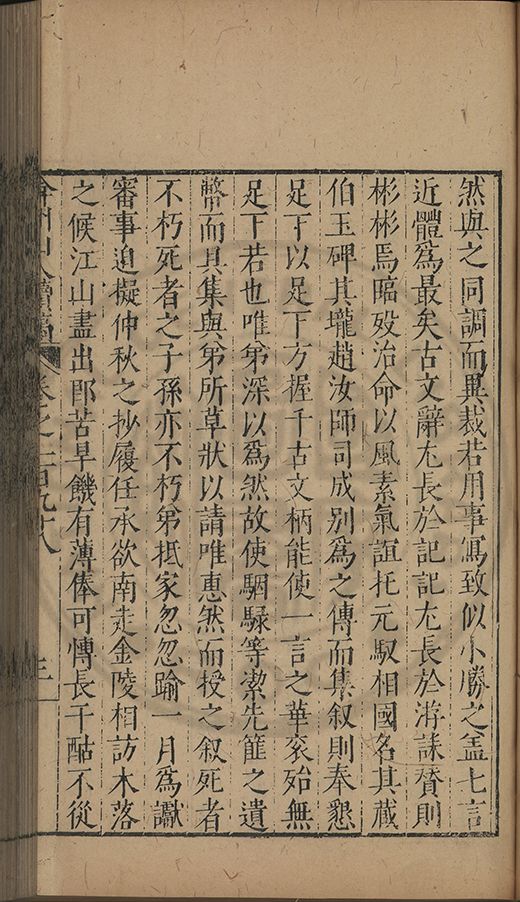 然與之同調而異裁若用事寫致似小勝之盖七言
近體為最矣古文辭尤長於記記尤長於游誄賛則
彬彬焉臨殁治命以風素氣誼托元馭相國名其藏
伯玉碑其壠趙汝師司成别為之傳而集叙則奉懇
足下以足下方握千古文柄能使一言之華衮殆無
足下若也唯弟深以為然故使駰騄等潔先䇿之遺
幣而具集與弟所草狀以請唯惠然而授之叙死者
不朽死者之子孫亦不朽弟抵家忽忽踰一月為讞
審事迫擬仲秋之抄履任承欲南走金陵相訪木落
之候江山盡出郎苦旱饑有薄俸可慱長干酤不從
弇州山人續稿 卷之一百九十八 三